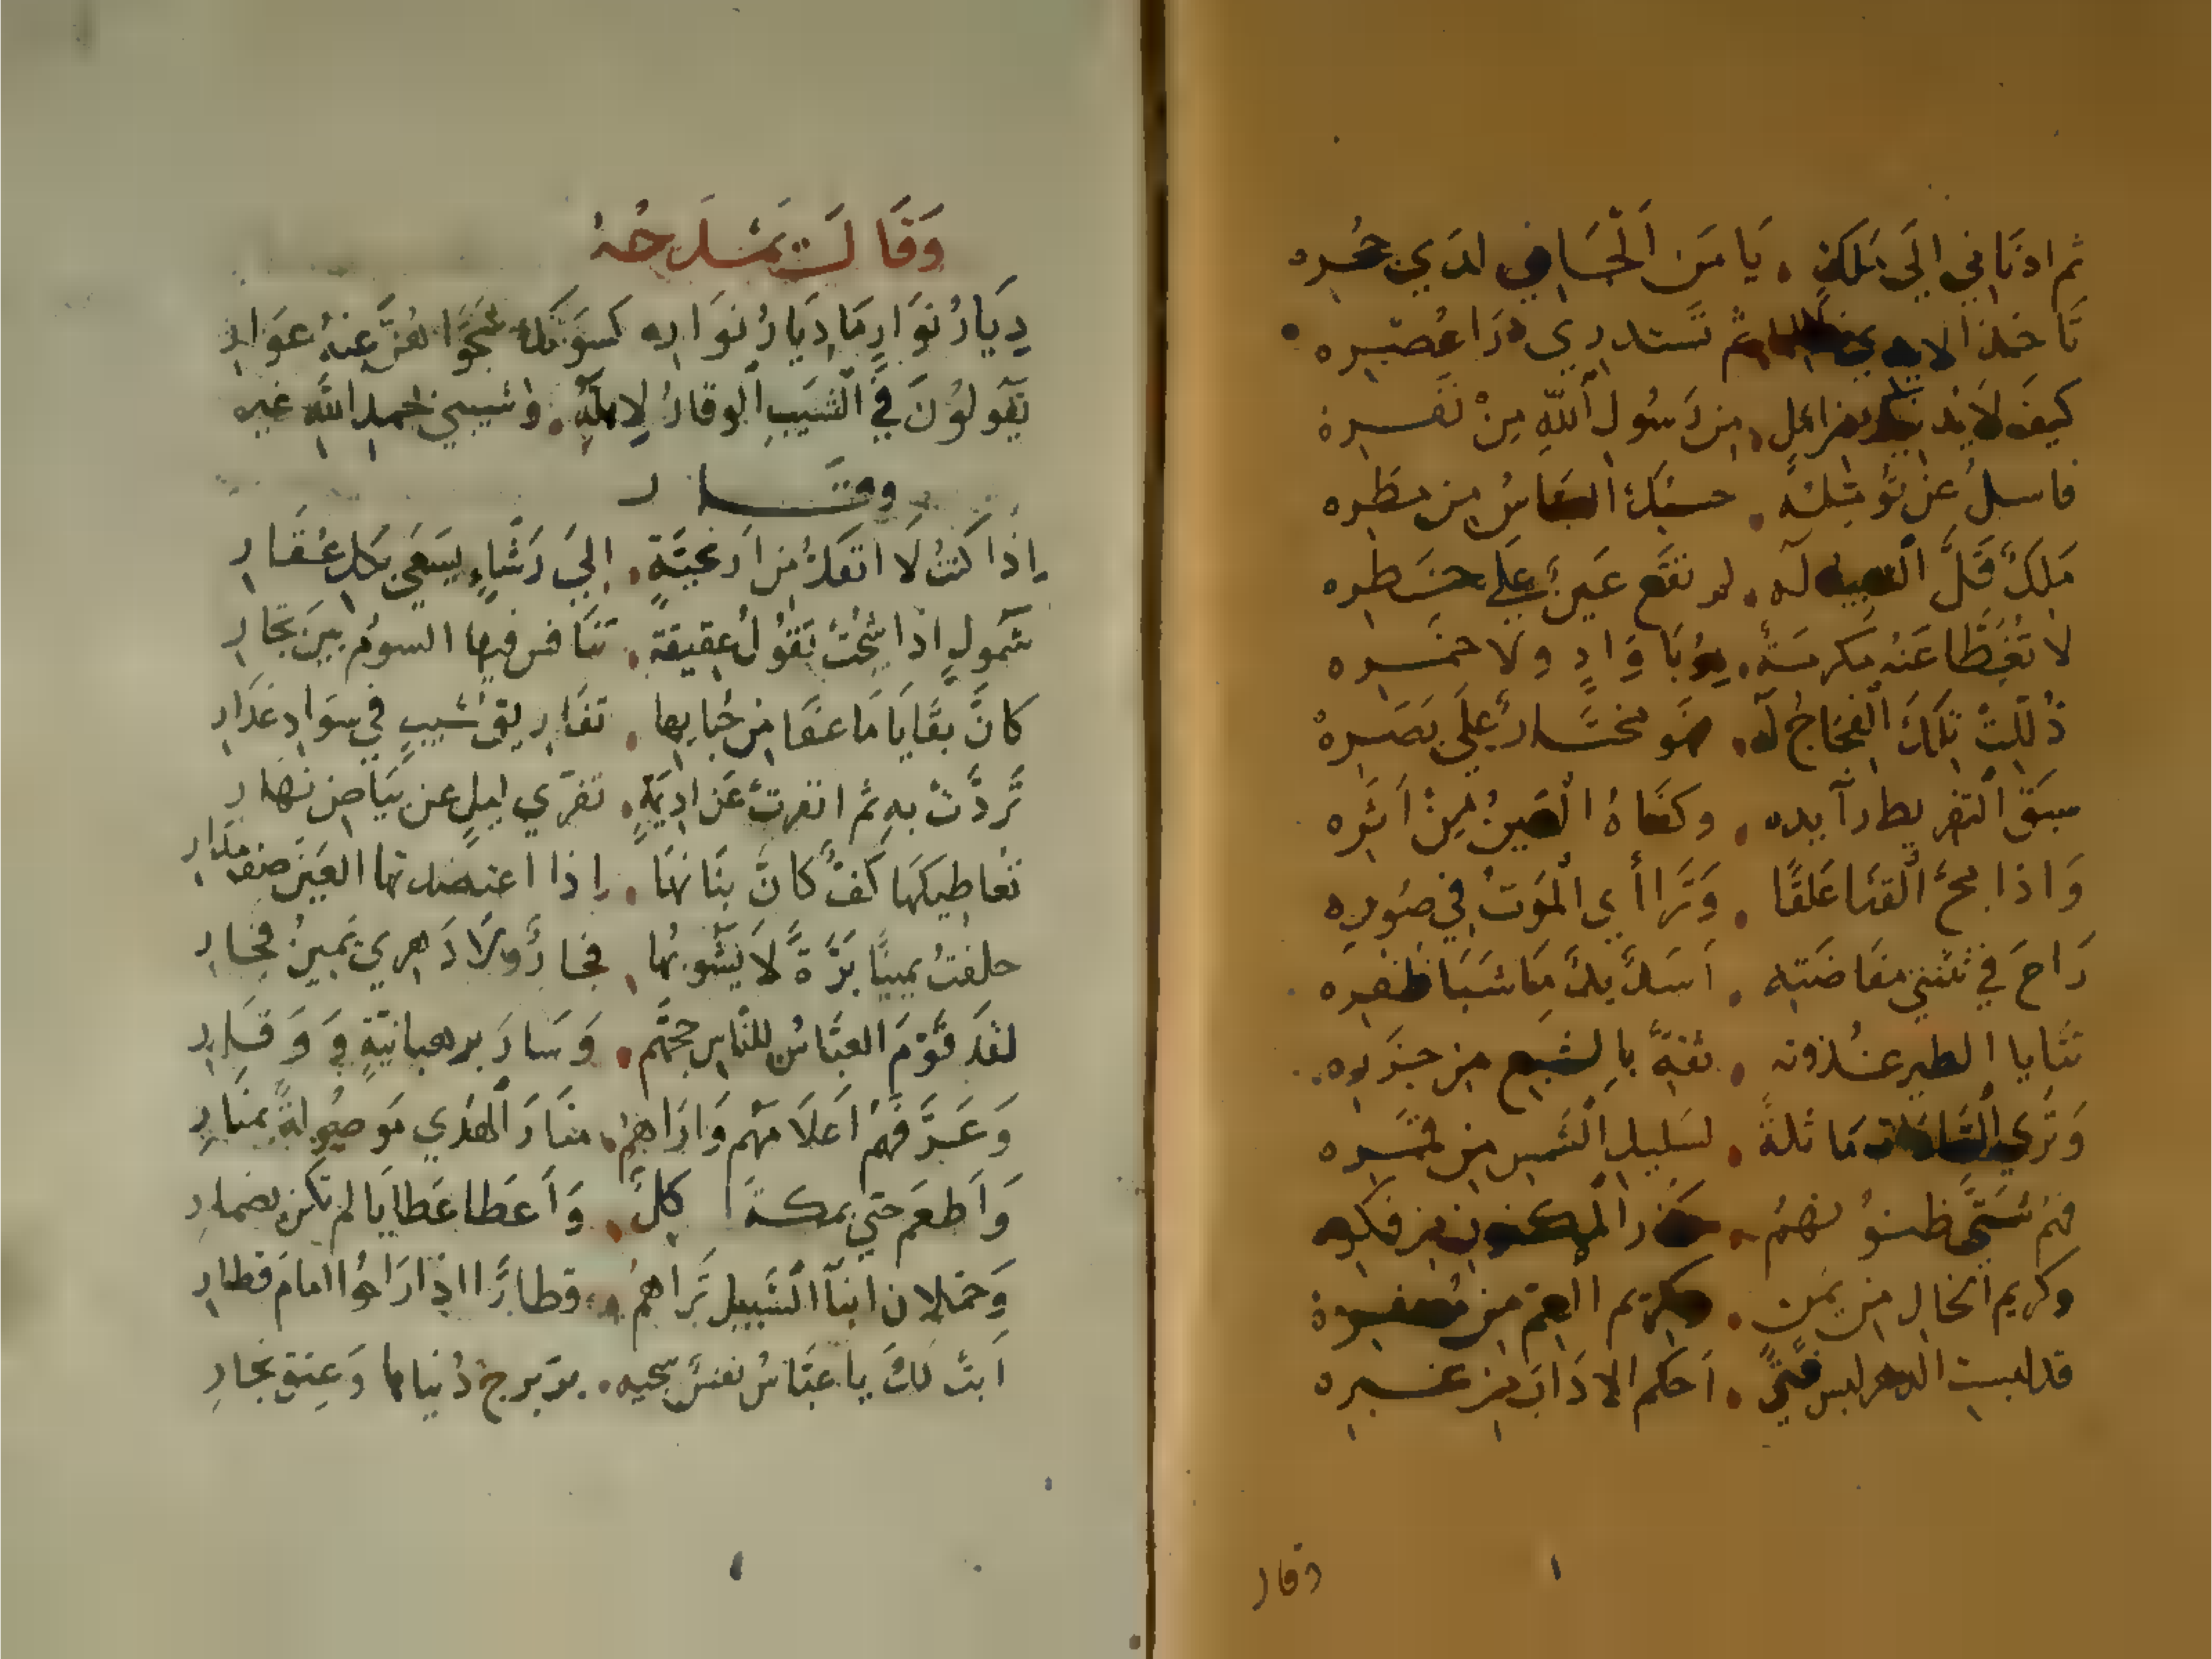 ثم ادنَاني الَي مَلَكٍ . يَا مَن اَلْجَاني لدَي حُجره
تَاخذ الايدي ثم تَستدرِي ذرَا عُصَيره
كيفَ لَا يُدنيكَ من اَملٍ . مِن رَسُولُ اللهِ مِنْ نَفَره
فاسلُ عَن نَوٍ تؤمله . حسبكَ العبَّاسُ مِن مطَره
مَلكٌ قَلَّ الشبيهُ لَه . لم تقَع عَينٌ عَلي خَطره
لا تَغَطَّا عَنْهُ مكرمَةٌ . برُبَا وَادٍ ولا خمَره
ذُلّلَتْ تلكَ الفجَاجُ لَه . فهَو مختَارٌ علَي بَصَره
سبَقَ التفريط رآيده . وكفَاهُ العَينُ مِنْ اَثَره
وَاذا مجَّ القنَا عَلقًا . وَتَراأَي الموَتُ في صُوره
رَاحَ في ثنَيي مفَاضَته . اَسَدٌ يدمَي شبَا ظفره
تتَايا الطير غدوته . ثقةً بالشبع من جزَره
وَتَري السَادَات مَاثلةً . لسَليل الشمسِ من قمَره
فهُم شَتَّي ظنُونهُمُ . حَذر المكنون من فكره
وكريم الخال من يمَن . وكريم العمّ من مُضره
قد لبست الدهر لبس فتًي . اَحكم الادَاب من غبره
وقال
وَقَالَ يَمْدَحُهُ
دِيَارُ نوَارٍ مَا دِيَارُ نوَاره كسَونَكَ شَجوًا هُنَّ عنهُ عوَارِ
يَقولوُنَ في الشَيبِ الوقارُ لاِهلهِ . وشيبي بحمد اللهِ غيره
وقــال
إِذا كنتُ لَا انفكُّ من اَريحيَّةٍ . إلَي رَشَإٍ يسعَي بكل عُقَارِ
شمولٍ اذا شُجّتْ تقوُلُ عقيقةٍ . تنَافس فيها السومُ بينَ تجَارِ
كانَّ بقَايَا مَا عَفَا من حُبَابها . تفَاريقُ شيبٍ في سوَاد عذَار
تَردَّتْ بهِ ثم انفرتْ عَن اديمهِ . تفَرّي ليلٍ عن بيَاض نهَارِ
تعَاطيكهَا كفٌّ كانَّ بنَانهَا . اِذا اعتضدتها العَينُ صف مدَارِ
حلفتُ يمينًا بَرَّةً لَا يشوبُها . فجَارٌ ولَا دَهري يَمينُ فجارِ
لقَد قوَّمَ العبَّاسُ للنَّاس حجَّهم . وَسَارَ برهبانيَّةٍ وَوَقَارِ
وَعَرَّفهُم اَعلَامَهم وَارَاهمُ . منَارَ الهُدَي مَوصُولةً بمنَارِ
وَاَطعَم حتي بمكةَ اكلٌ . وَاَعطَا عَطايَا لم تكن بضمارِ
وَحُملان ابنَآ السَّبيل تَراهمُ . قطارًا اذا رَاحُوا امَامَ قطارِ
اَبتْ لكَ يا عبَّاسُ نفسٌ سجيه . بزَبرجِ دُنياها وَعِتق نجَارِ